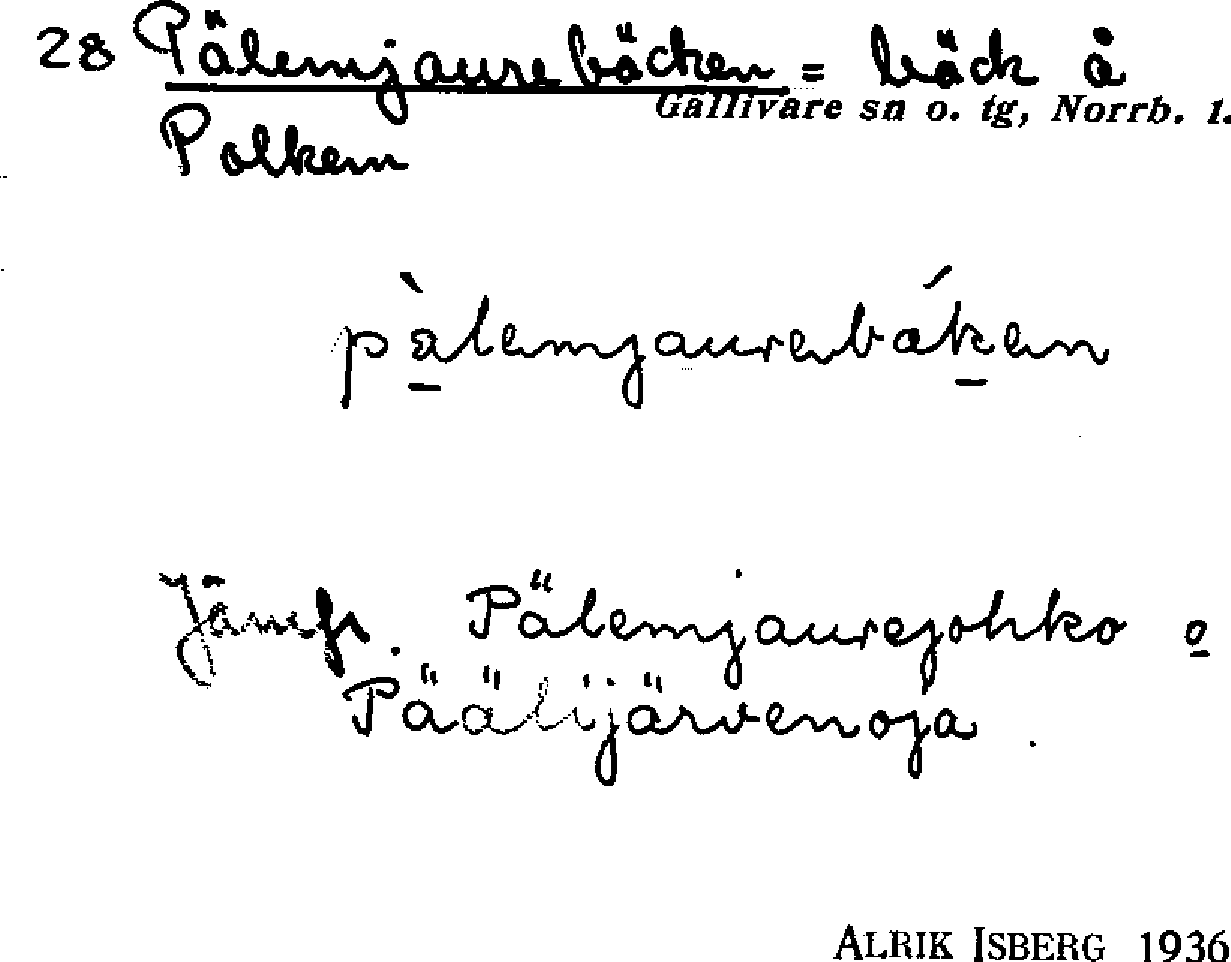 28 Pälemjaurebäcken = bäck å
Gällivare sn o. tg, Norrb. l.
Polkem
pàlemjaurebáken
Jämfr. Pälemjaurejohko o
Päälijärvenoja.
ALRIK ISBERG 1936